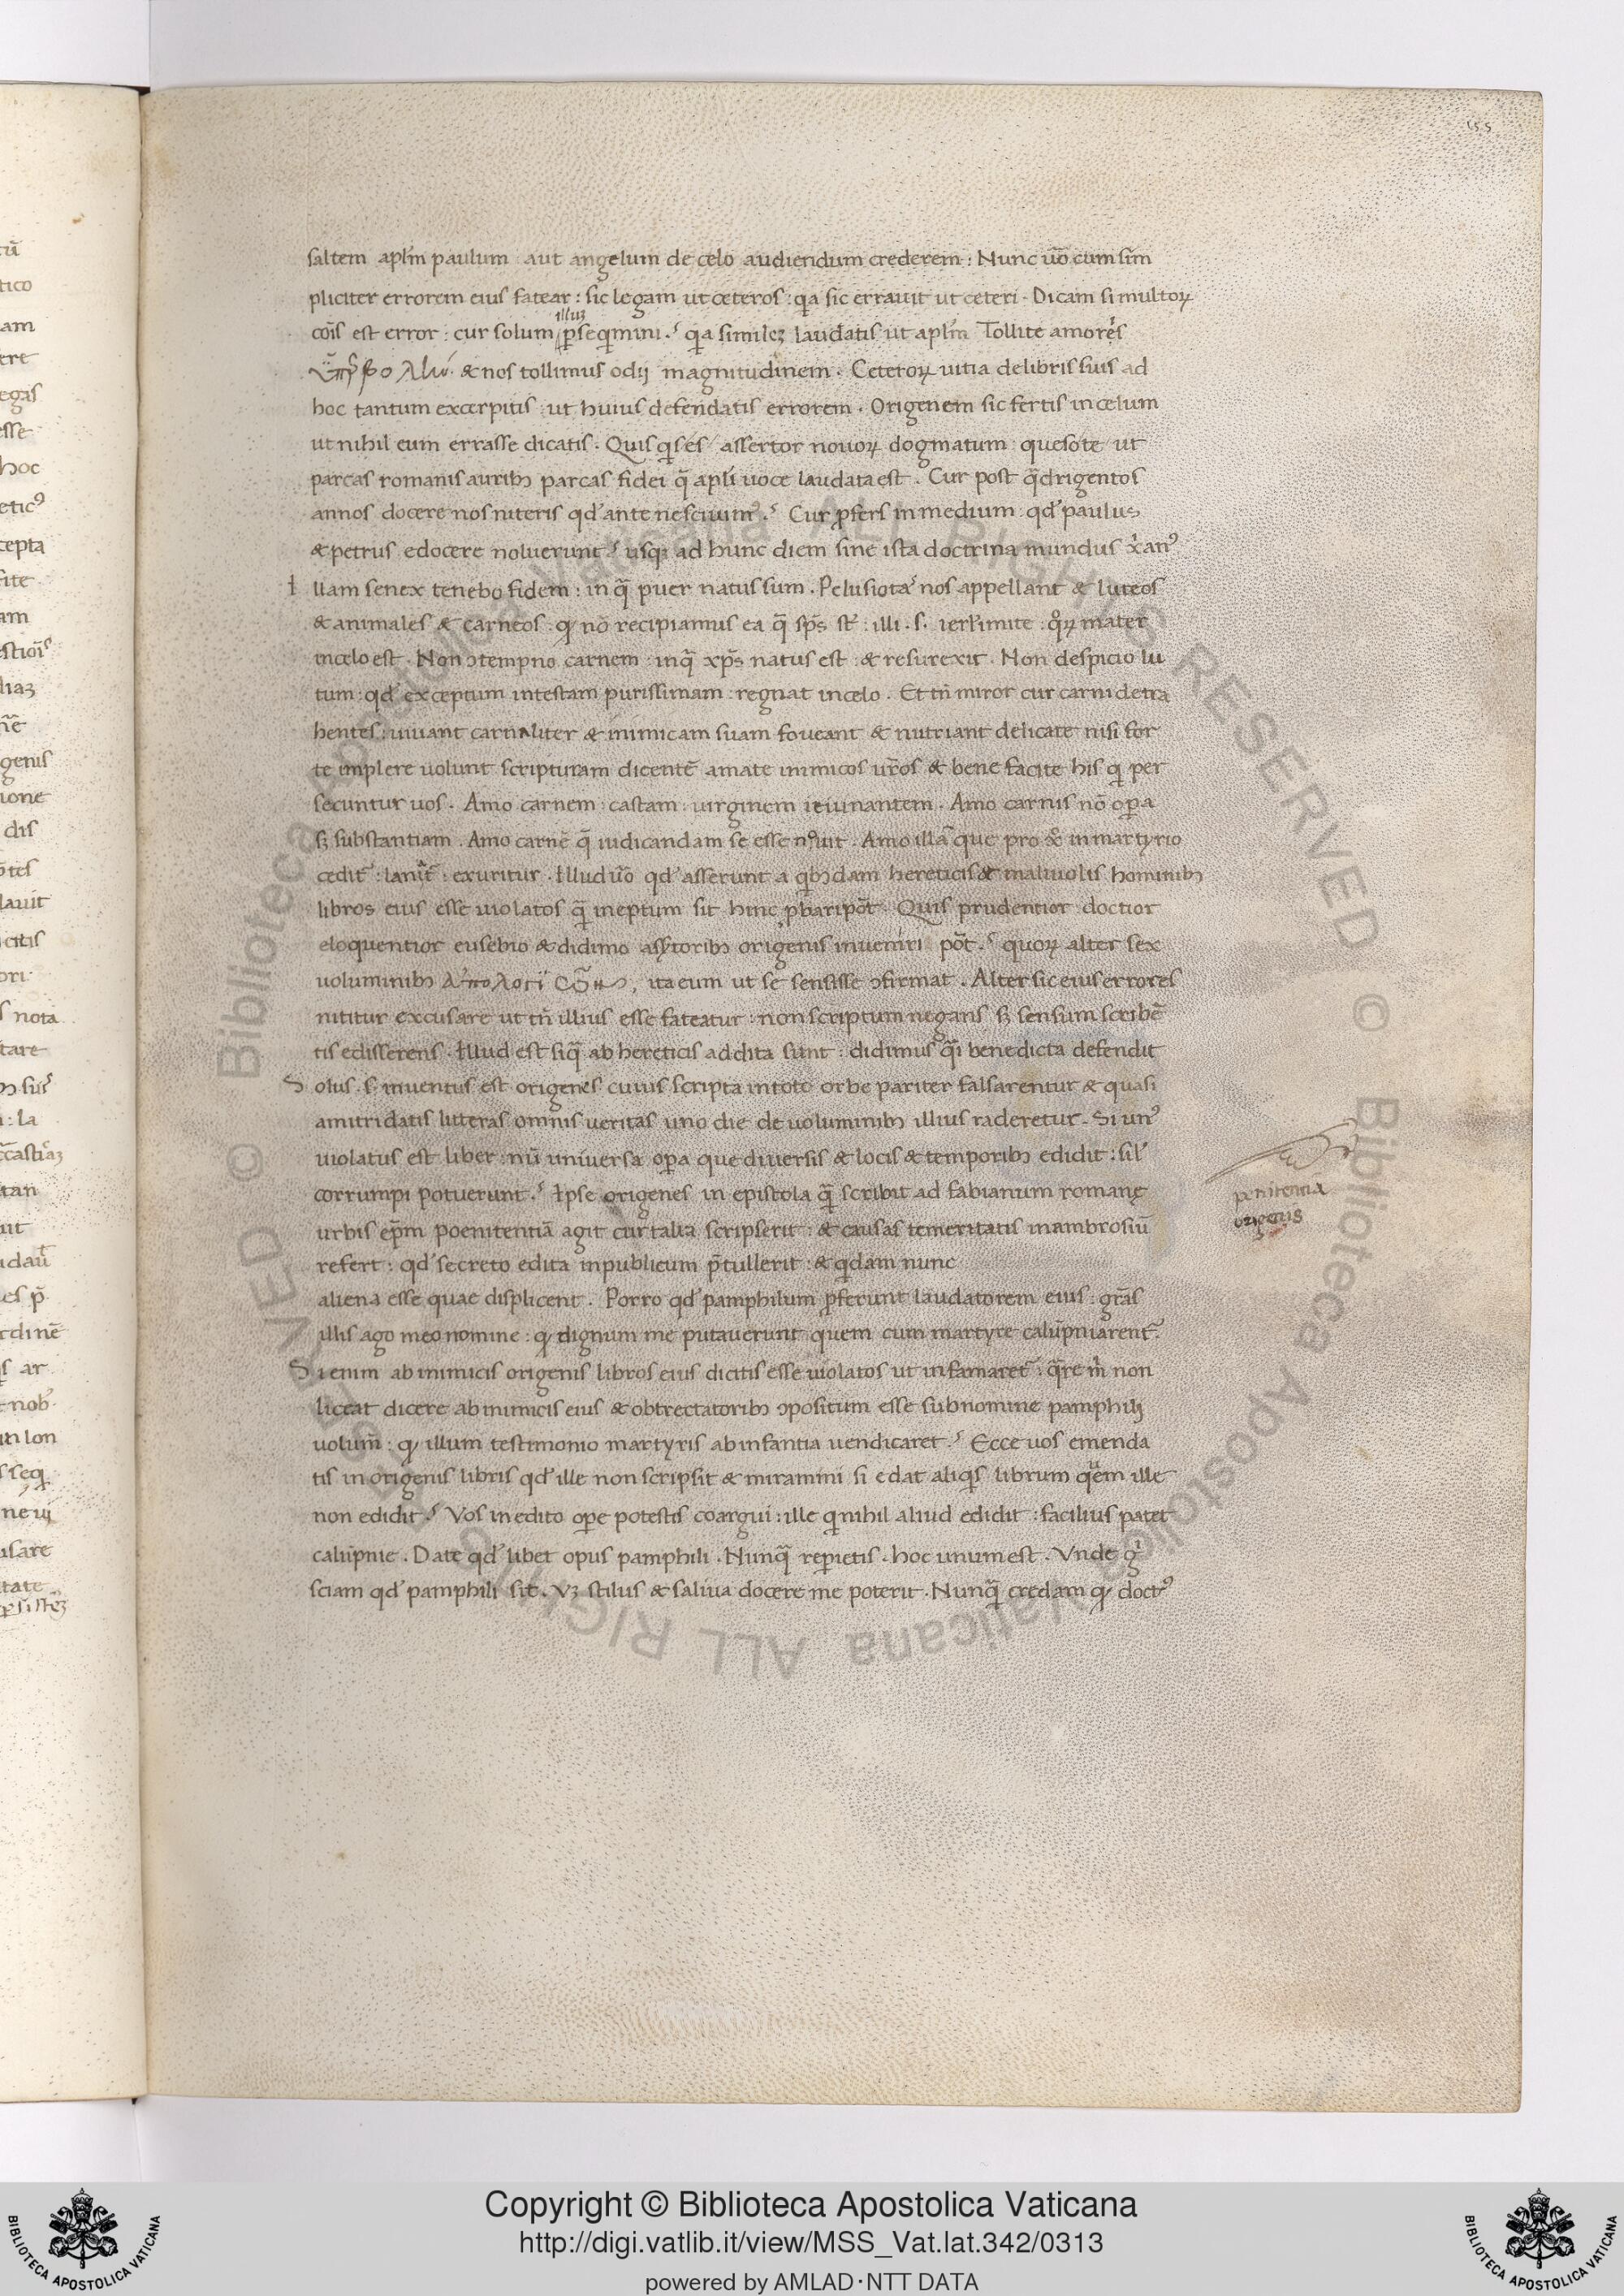 155
saltem apl̄m paulum aut angelum de celo audiendum crederem : Nunc ūo cum sim
pliciter errorem eius fatear : sic legam ut ceteros : qa sic errauit ut ceteri . Dicam si multoꝝ
cōis est error : cur solum illuꝫ ꝑseqimini ? qa simileꝫ laudatis ut apl̄m Tollite amoris
& nos tollimus odij magnitudinem . Ceteroꝝ uitia de libris suis ad
hoc tantum excerpitis : ut huius defendatis errorem . Origenem sic fertis in celum
ut nihil eum errasse dicatis . Quisqis es assertor nouoꝝ dogmatum : queso te ut
parcas romanis auribꝫ parcas fidei q̄ apl̄i uoce laudata est . Cur post qadrigentos
annos docere nos niteris qd' ante nesciuimꝰ ? Cur ꝓfers in medium : qd' paulus
& petrus edocere noluerunt ? usqꝫ ad hunc diem sine ista doctrina mundus xp̄anꝰ
I llam senex tenebo fidem : in q̄ puer natus sum . Pelusiotas nos appellant & luteos
& animales & carneos : ꝙ nō recipiamus ea q̄ sp̄s st̄ : illi . s . ierl'imite : qoꝝ mater
in celo est . Non ɔtempno carnem : in q̄ xp̄s natus est : & resurexit . Non despicio lu
tum : qd' exceptum in testam purissimam : regnat in celo . Et tn̄ miror cur carni detra
hentes : uiuant carnaliter & inimicam suam foueant & nutriant delicate nisi for
te implere uolunt scripturam dicentē amate inimicos ur̄os & bene facite his qi per
secuntur uos . Amo carnem : castam : uirginem ieiunantem . Amo carnis nō oꝑa
sꝫ substantiam . Amo carnē q̄ iudicandam se esse nouit . Amo illā que pro xo in martyrio
cedit᷑ : laniat᷑ : exuritur . Illud ūo qd' asserunt a qibꝫdam hereticis & maliuolis hominibꝫ
libros eius esse uiolatos q̄ ineptum sit hinc ꝓbari pōt . Quis prudentior : doctior
eloquentior eusebio & didimo assertoribꝫ origenis inueniri pōt ? quoꝝ alter sex
uoluminibꝫ ita eum ut se sensisse ɔfirmat . Alter sic eius errores
nititur excusare ut tn̄ illius esse fateatur : non scriptum negans sꝫ sensum scribē
tis edisserens . Illud est si q̄ ab hereticis addita sunt : didimus qasi benedicta defendit
S olus . s . inuentus est origenes cuius scripta in toto orbe pariter falsarentur & quasi
a mitridatis litteras omnis ueritas uno die de uoluminibꝫ illius raderetur . Si unꝰ
uiolatus est liber : nū uniuersa oꝑa que diuersis & locis & temporibꝫ edidit : sil'
corrumpi potuerunt ? Ipse origenes in epistola q̄ scribit ad fabianum romane
urbis ep̄m poenitentiā agit cur talia scripserit : & causas temeritatis in ambrosiū
refert : qd' secreto edita in publicum ꝓtullerit : & qidam nunc
aliena esse quae displicent . Porro qd' pamphilum ꝓferunt laudatorem eius : gr̄as
illis ago meo nomine : ꝙ dignum me putauerunt quem cum martyre calūpniarent᷑
S i enim ab inimicis origenis libros eius dicitis esse uiolatos ut infamaret᷑ : qare m̄ non
liceat dicere ab inimicis eius & obtrectatoribꝫ ɔpositum esse sub nomine pamphili
uolum̄ : ꝙ illum testimonio martyris ab infantia uendicaret ? Ecce uos emenda
tis in origenis libris qd' ille non scripsit & miramini si edat aliqis librum quem ille
non edidit ? Vos in edito oꝑe potestis coargui : ille qi nihil aliud edidit : facilius patet
calūpnie . Date qd' libet opus pamphili . Nunq̄ reꝑietis . hoc unum est . Vnde gi
sciam qd' pamphili sit . Vꝫ stilus & saliua docere me poterit . Nunq̄ credam ꝙ doctꝰ
penitentia
origenis
© Biblioteca Apostolica Vaticana ALL RIGHTS RESERVED
Copyright © Biblioteca Apostolica Vaticana
http://digi.vatlib.it/view/MSS_Vat.lat.342/0313
powered by AMLAD·NTT DATA
BIBLIOTECA APOSTOLICA VATICANA
BIBLIOTECA APOSTOLICA VATICANA